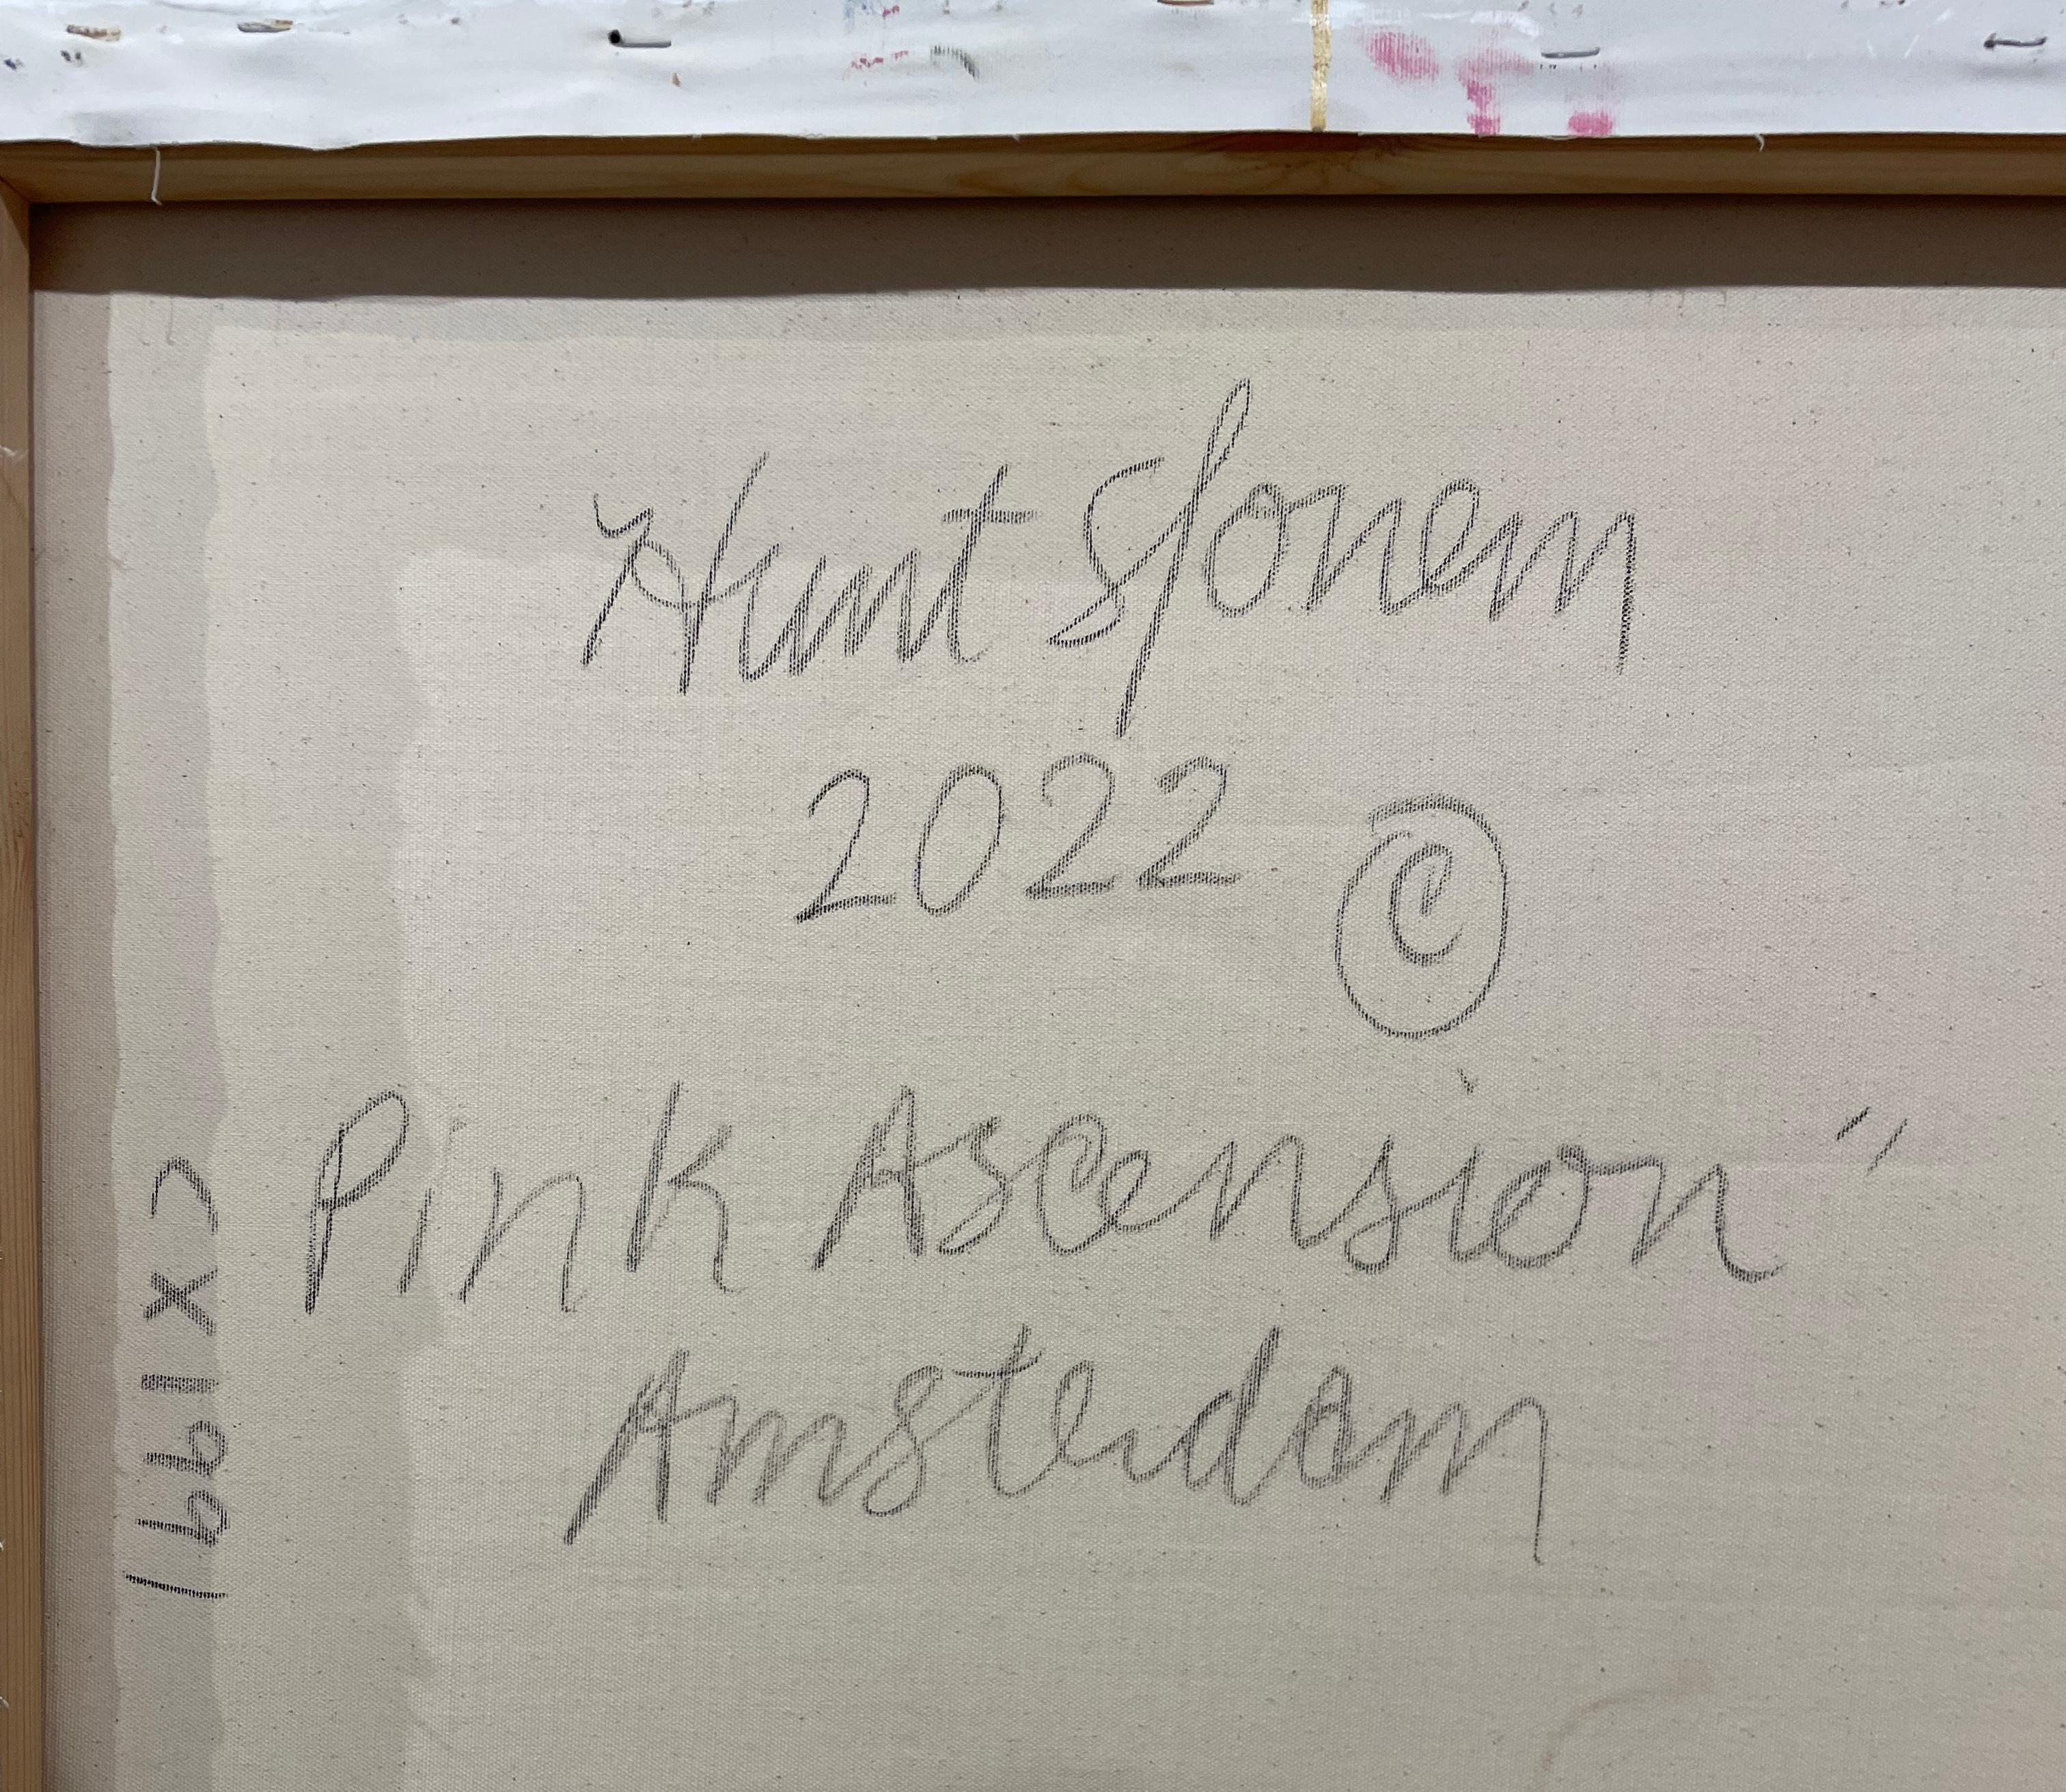 Hunt Slonem
2022 ©
Pink Ascension"
Amsterdam
CX1991